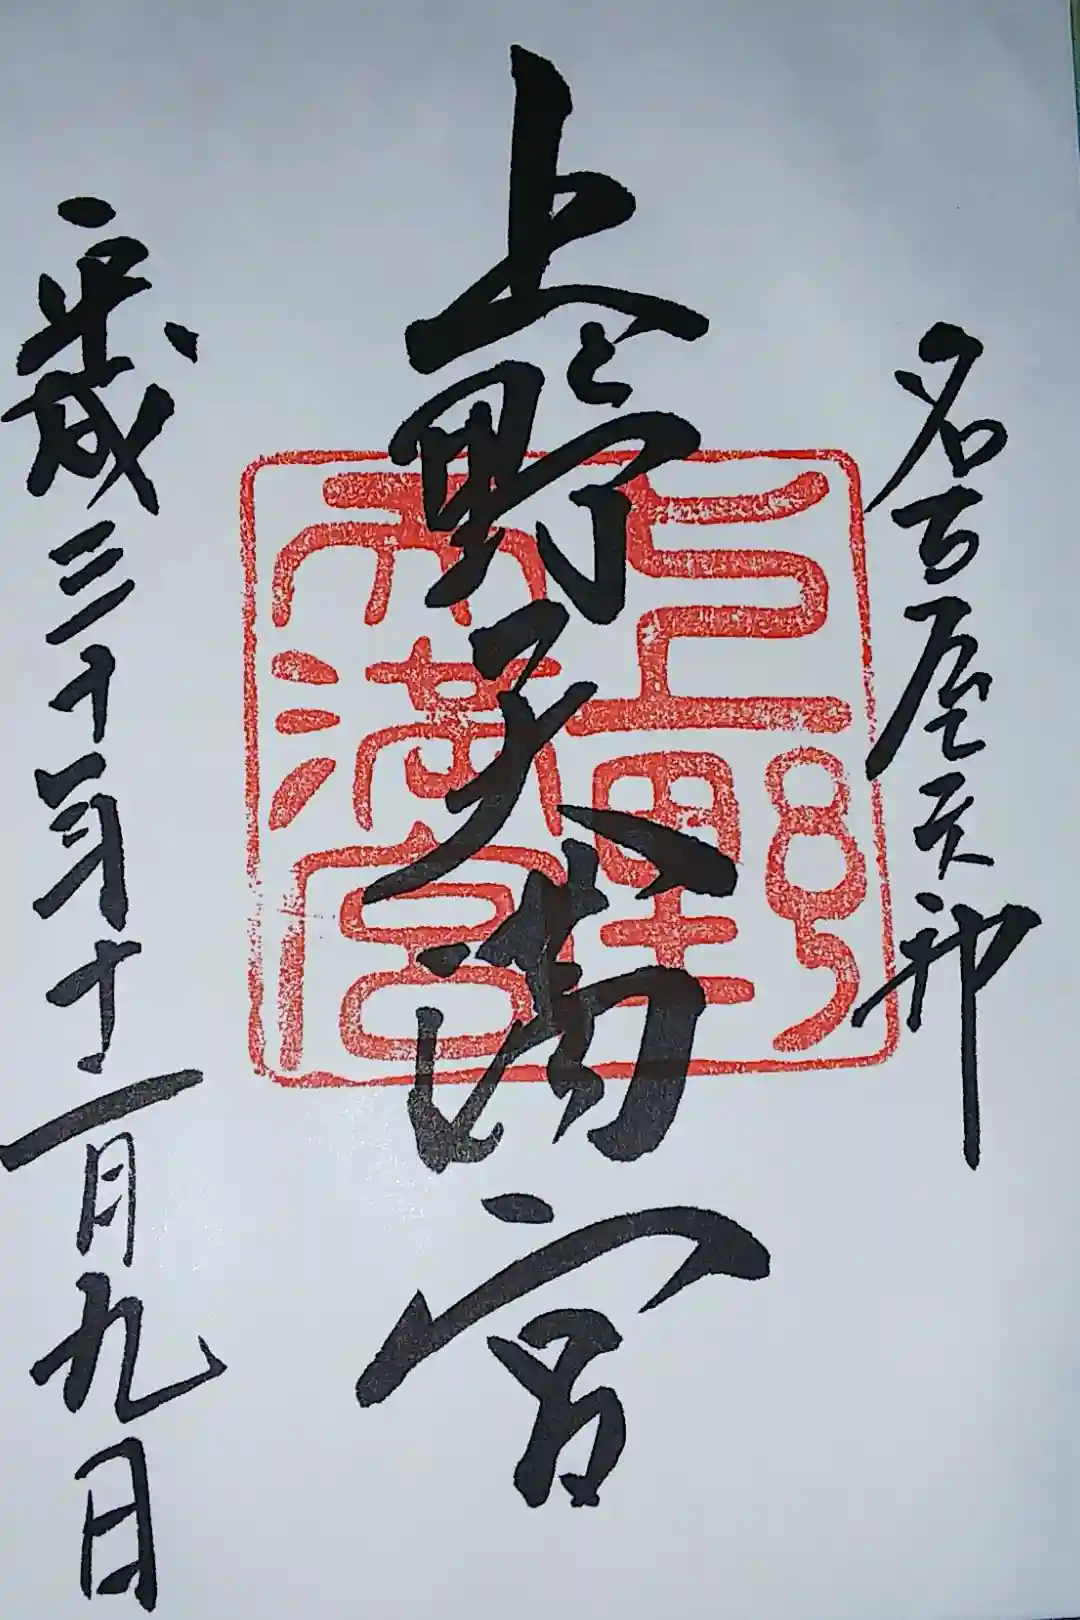 名古屋天神
上野天満宮
平成三十年十一月九日
上野
天満宮